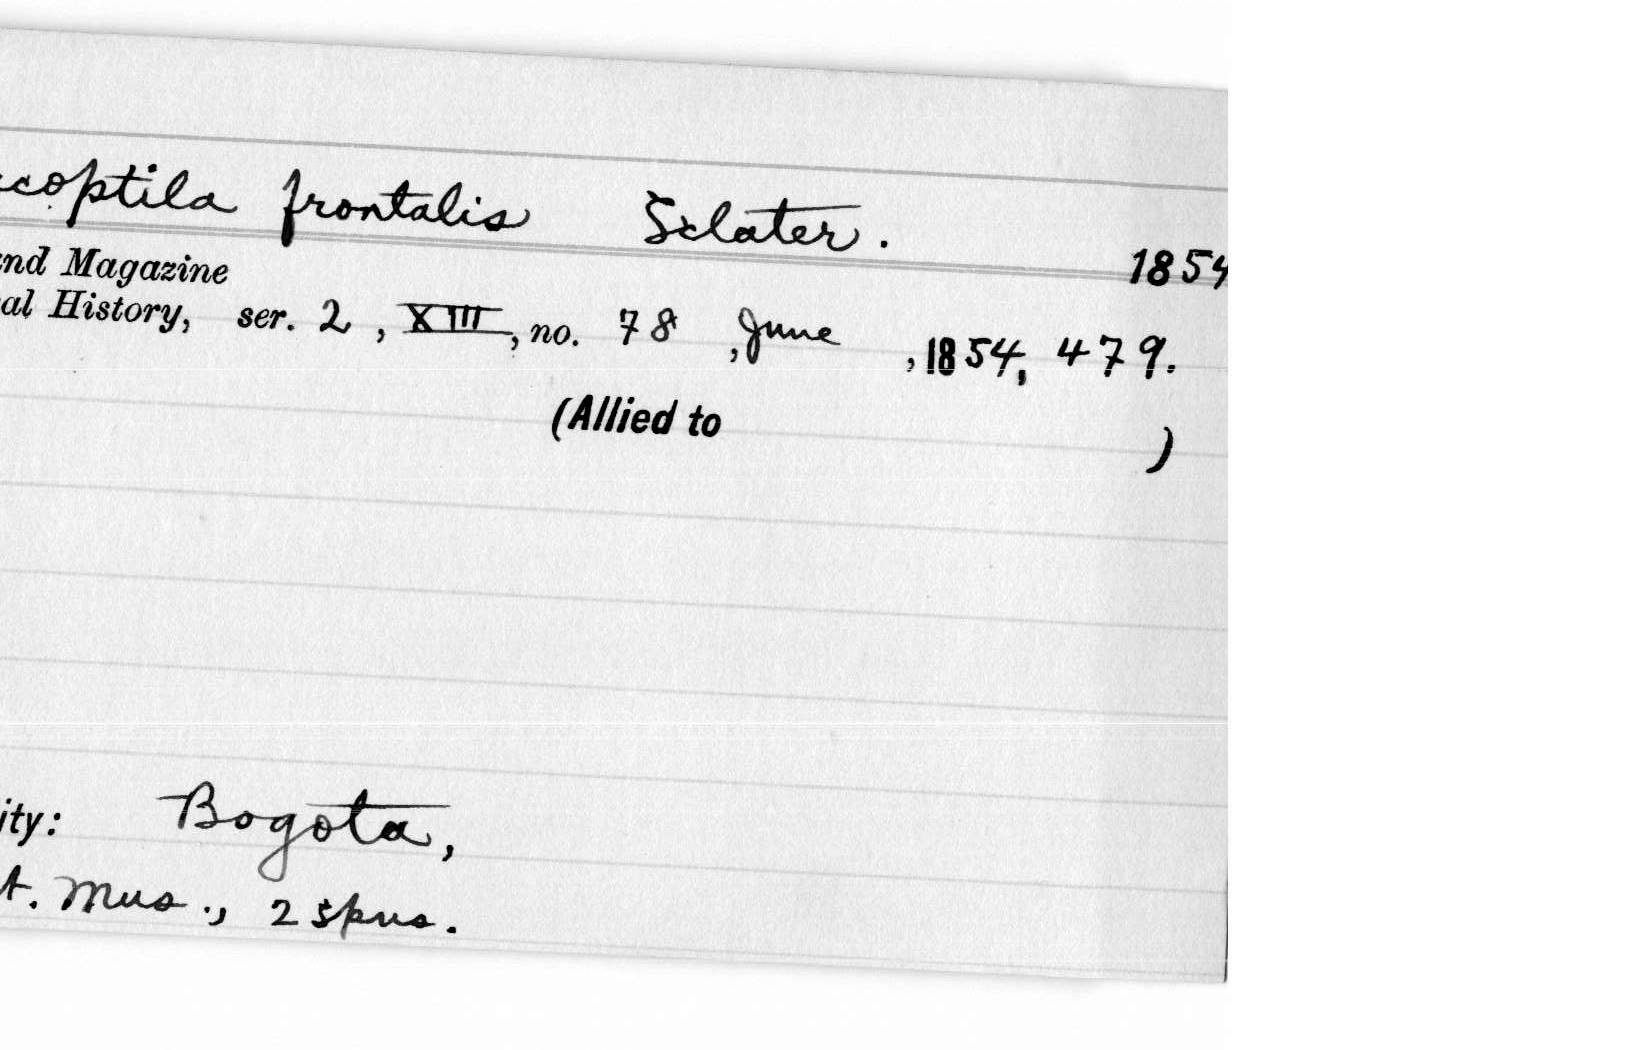 coptila frontalis Sclater.
1854
nd Magazine
al History, ser. 2, XIII, no. 78, June, 1854, 479.
(Allied to )
ity: Bogota,
t. Mus., 2 spns.